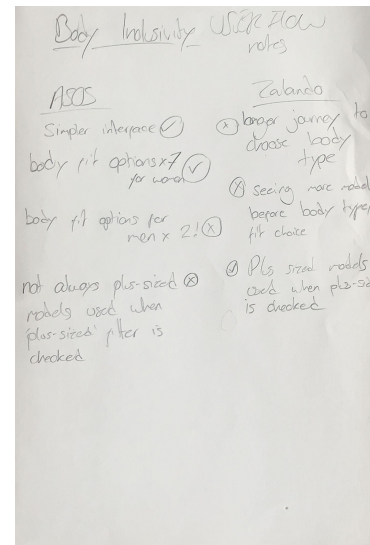 Body Inclusivity USER FLOW
notes
ASOS
Simpler interface ✓
body fit options x 7 ✓
for women
body fit options for
men x 2! ⓧ
not always plus-sized ⓧ
models used when
'plus-sized' filter is
checked
Zalando
ⓧ longer journey to
choose body
type
ⓧ seeing more model
before body type,
fit choice
✓ Pls sized models
used when plz-si
is checked